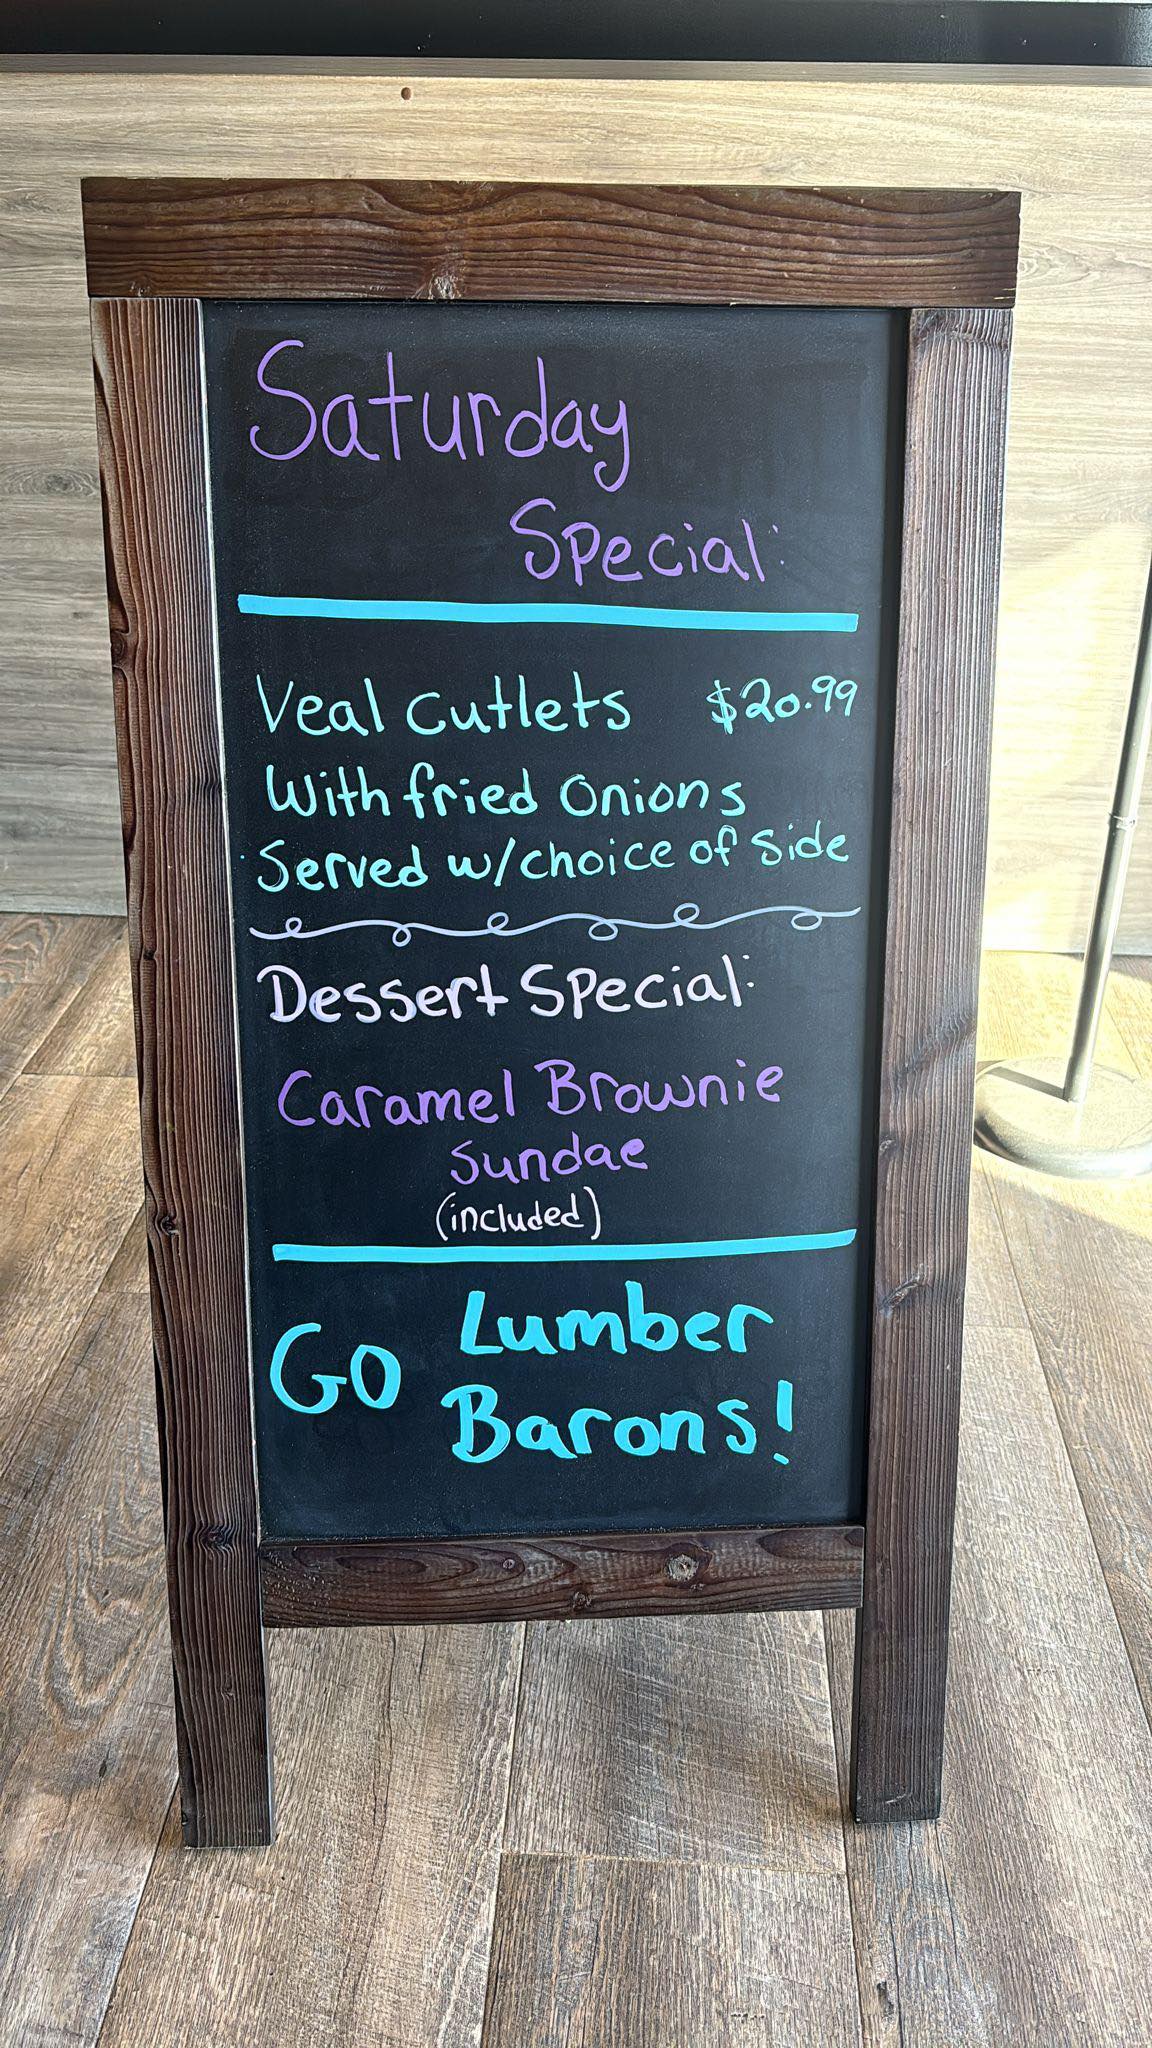 Saturday
Special:
Veal Cutlets $20.99
With fried Onions
Served w/choice of Side
Dessert Special:
Caramel Brownie
Sundae
(included)
GO Lumber
Barons!